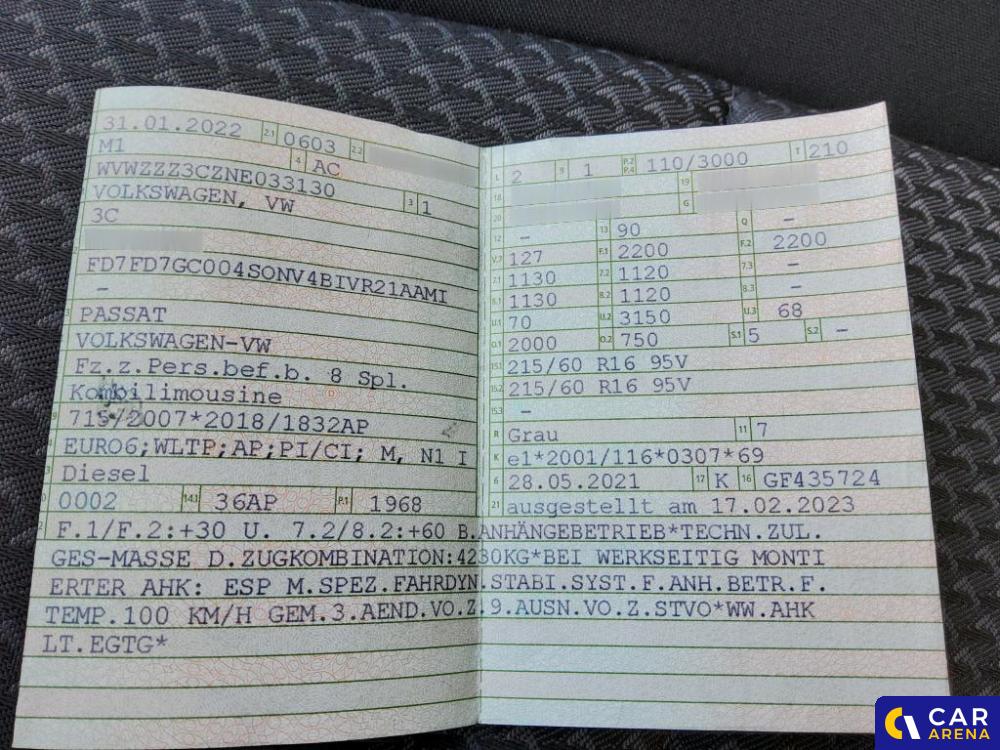 31.01.2022 2.1 0603 2.2
M1 4 AC
WVWZZZ3CZNE033130
VOLKSWAGEN, VW 3 1
3C
FD7FD7GC004SONV4BIVR21AAMI
–
PASSAT
VOLKSWAGEN-VW
Fz.z.Pers.bef.b. 8 Spl.
Kombilimousine
715/2007*2018/1832AP
EURO6;WLTP;AP;PI/CI; M, N1 I
Diesel
0002 14.1 36AP P.1 1968
L 2 9 1 P.2 P.4 110/3000 T 210
18 19
20 G
12 – 13 90 Q –
V.7 127 F.1 2200 F.2 2200
7.1 1130 7.2 1120 7.3 –
8.1 1130 8.2 1120 8.3 –
U.1 70 U.2 3150 U.3 68
O.1 2000 O.2 750 S.1 5 S.2 –
15.1 215/60 R16 95V
15.2 215/60 R16 95V
15.3 –
R Grau 11 7
K e1*2001/116*0307*69
6 28.05.2021 17 K 16 GF435724
21 ausgestellt am 17.02.2023
F.1/F.2:+30 U. 7.2/8.2:+60 B.ANHÄNGEBETRIEB*TECHN.ZUL.
GES-MASSE D.ZUGKOMBINATION:4230KG*BEI WERKSEITIG MONTI
ERTER AHK: ESP M.SPEZ.FAHRDYN.STABI.SYST.F.ANH.BETR.F.
TEMP.100 KM/H GEM.3.AEND.VO.Z.9.AUSN.VO.Z.STVO*WW.AHK
LT.EGTG*
CAR
ARENA